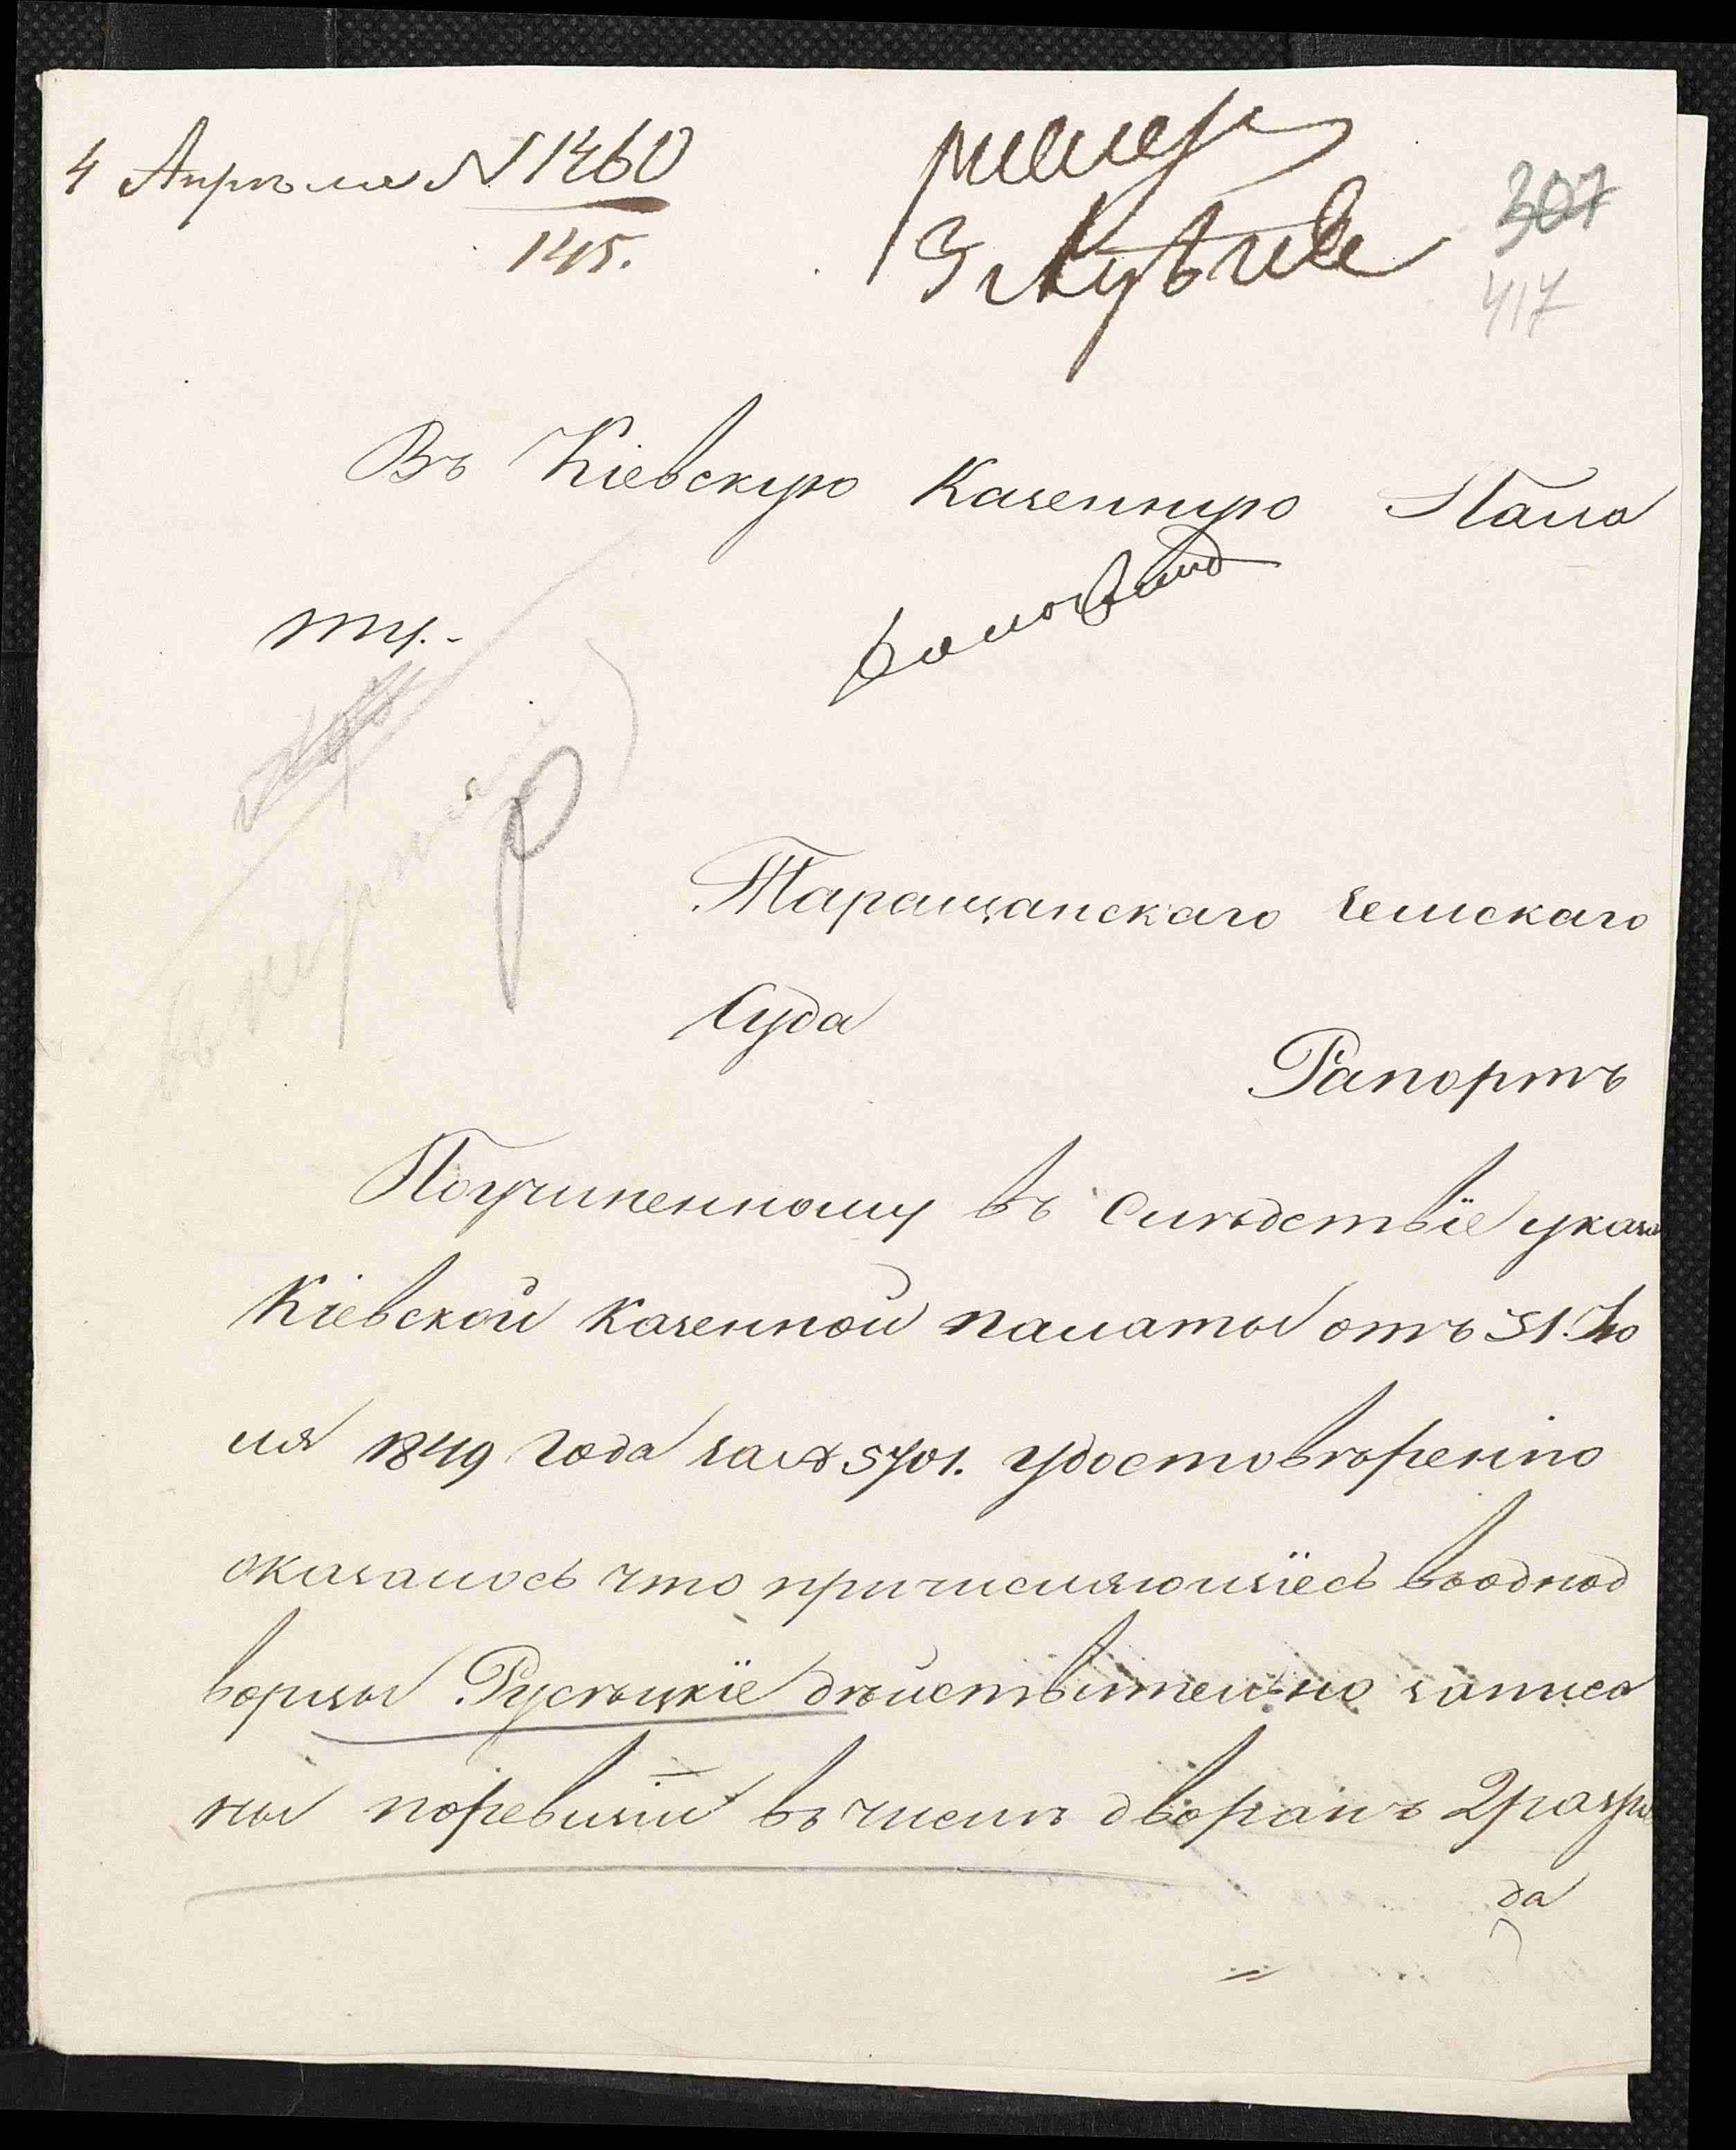 4 Апрѣля № 1460
145.
307
417
Въ Кіевскую Казенную Пала
ту.-
Таращанскаго Земскаго
Суда
Рапортъ
Поучиненному въ Слѣдствіе указа
Кіевской Казенной палаты отъ 31. Ію
ля 1849 года за № 5701. удостовѣренію
оказалось что причисляющіесь воднод
ворцы Русѣцкіе дѣйствительно записа
ны поревизіи въ числѣ дворянъ 2 разря
да